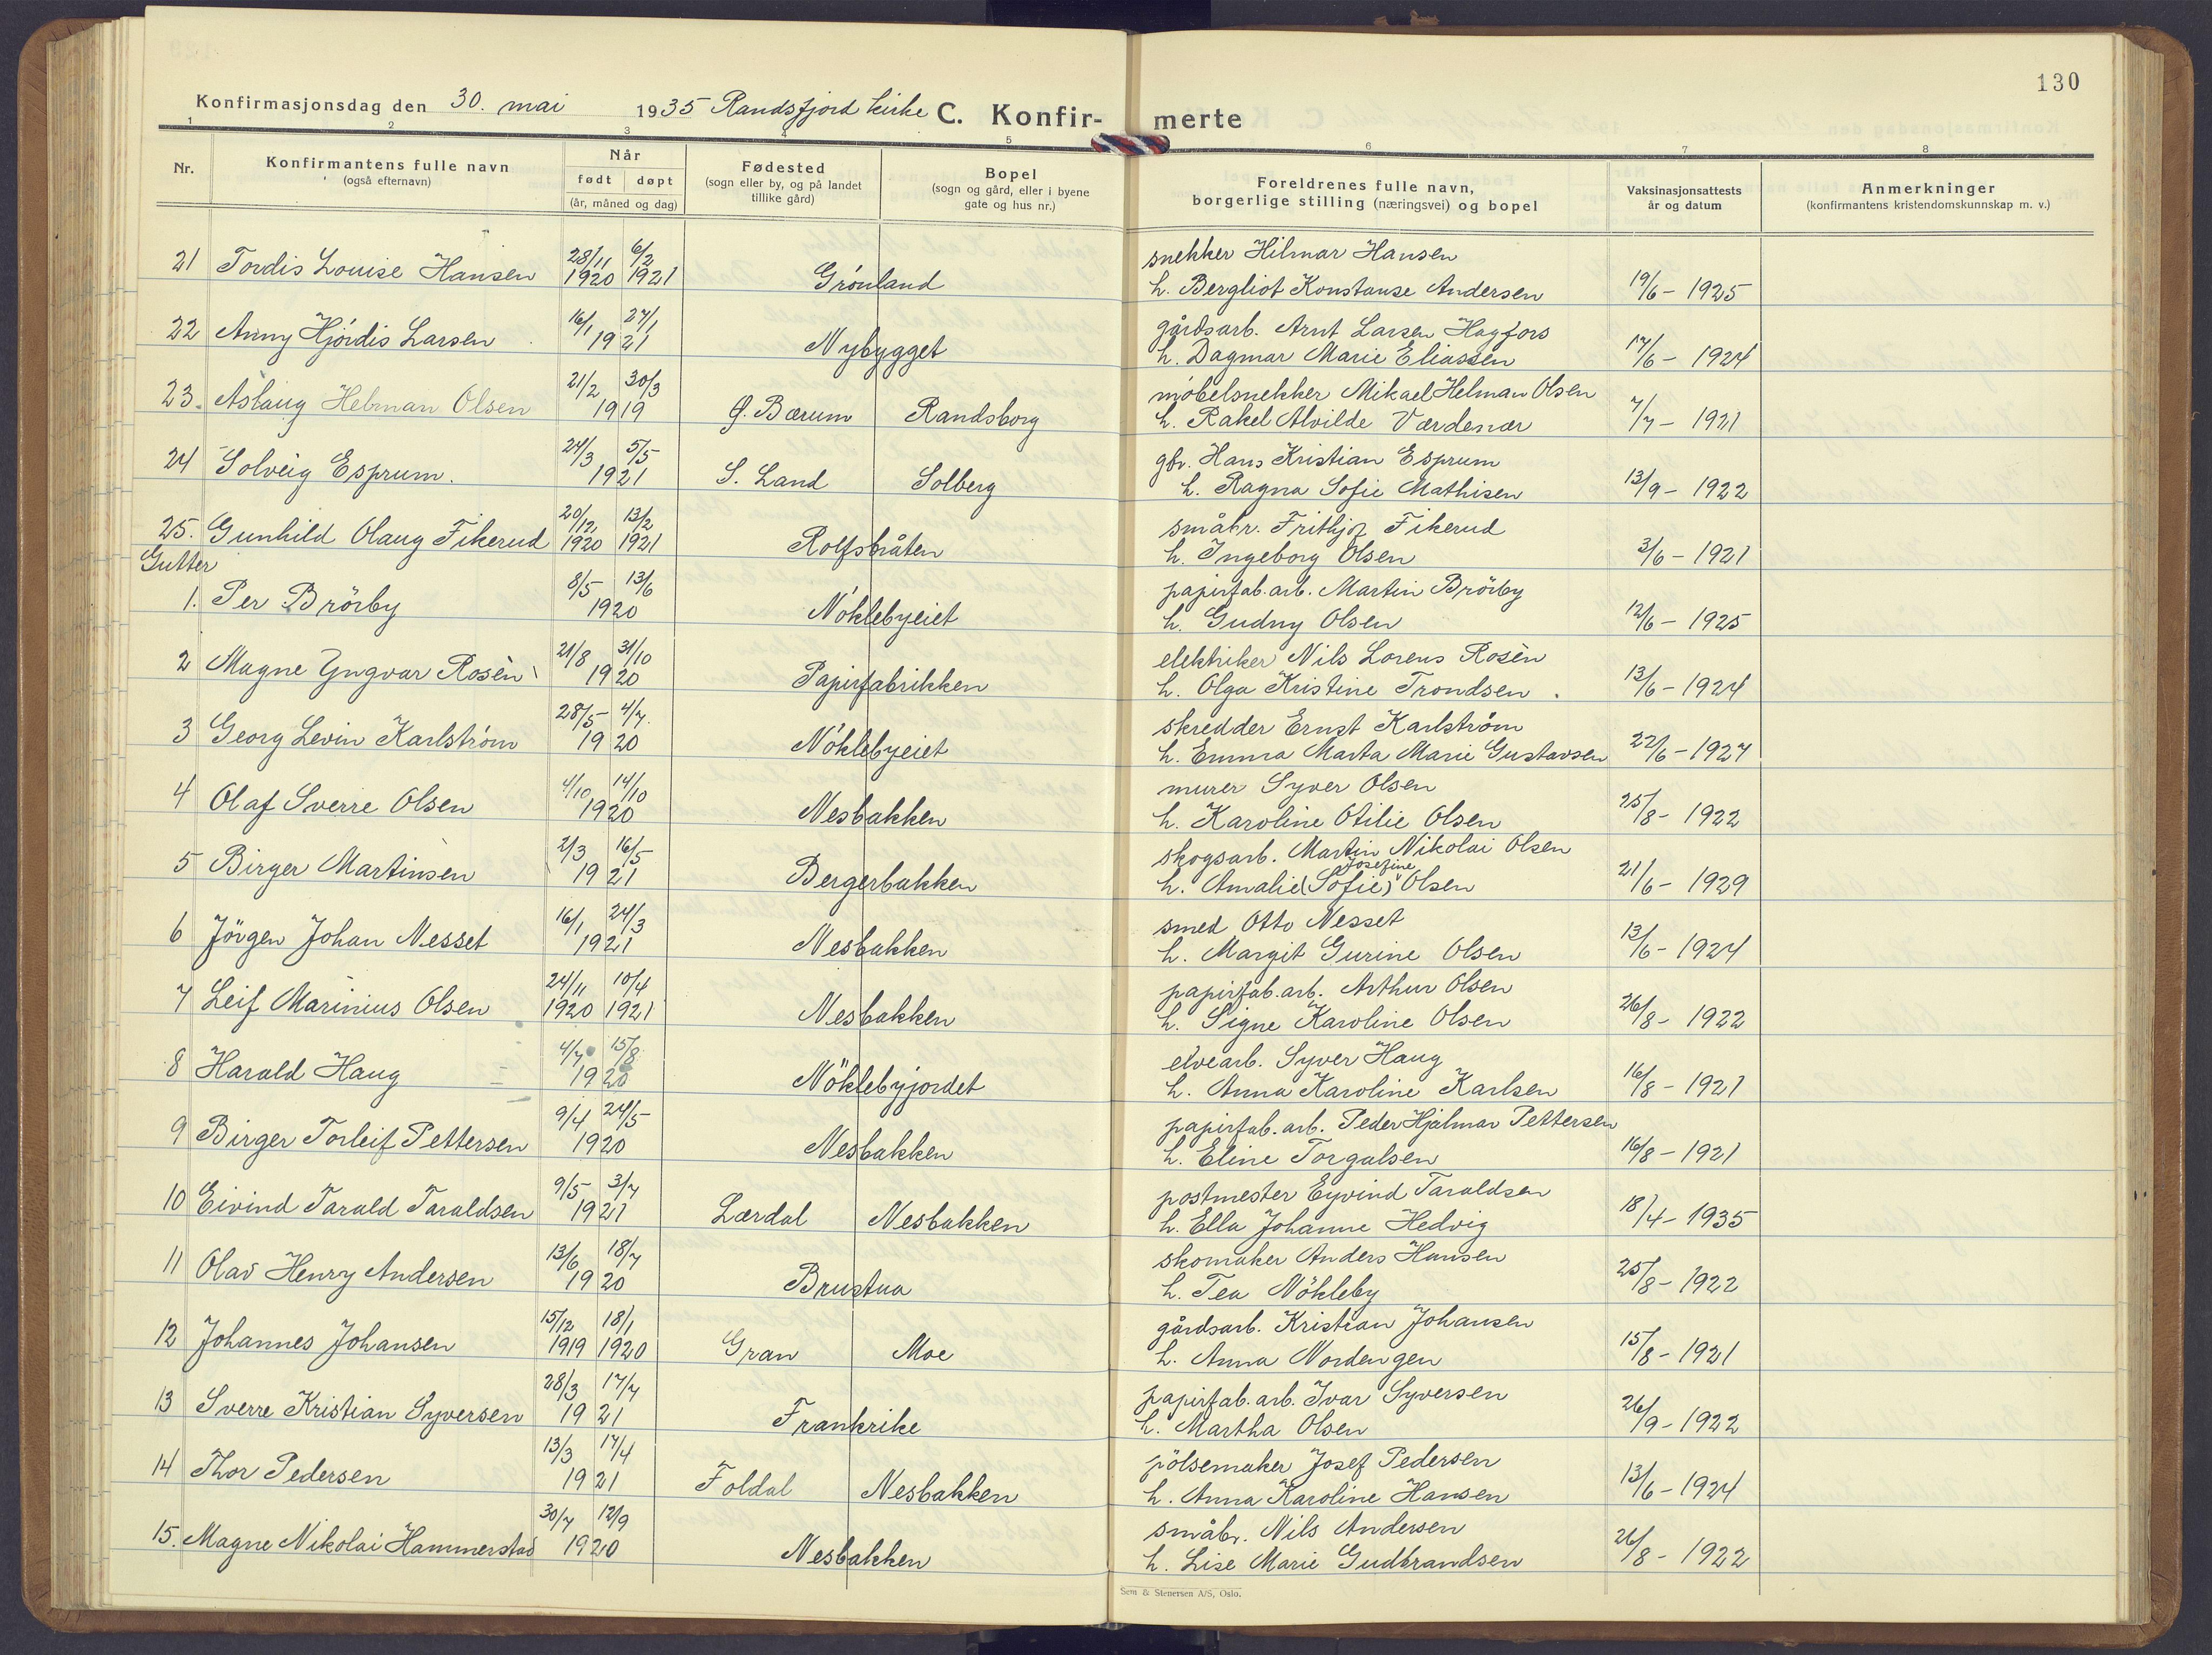 130
Konfirmasjonsdag den 30. mai 1935 Randsfjord kirke C. Konfir- merte
1 2 3 4 5 6 7 8
Nr. Konfirmantens fulle navn (også efternavn) Når født døpt (år, måned og dag) Fødested (sogn eller by, og på landet tillike gård) Bopel (sogn og gård, eller i byene gate og hus nr.) Foreldrenes fulle navn, borgerlige stilling (næringsvei) og bopel Vaksinasjonsattests år og datum Anmerkninger (konfirmantens kristendomskunnskap m. v.)
28/11 6/2 snekker Hilmar Hansen
21 Tordis Louise Hansen 1920 1921 Grønland h. Bergliot Konstanse Andersen 19/6 - 1925
16/1 27/1 gårdsarb. Arnt Larsen Hagfors
22 Anny Hjørdis Larsen 1921 Nybygget h. Dagmar Marie Eliassen 17/6 - 1924
21/2 30/3 møbelsnekker Mikael Helman Olsen
23. Aslaug Helman Olsen 1919 Ø. Bærum Randsborg h. Rakel Alvilde Værdenær 7/7 - 1921
24/3 5/5 gbr. Hans Kristian Esprum
24 Solveig Esprum. 1921 S. Land Solberg h. Ragna Sofie Mathisen 13/9 - 1922
20/12 13/2 småbr. Frithjof Fikerud
25. Gunhild Olaug Fikerud 1920 1921 Rolfsbråten h. Ingeborg Olsen 3/6 - 1921
Gutter
8/5 13/6 papirfab.arb. Martin Brörby
1. Per Brörby 1920 Nöklebyeiet h. Gudny Olsen 12/6 - 1925
21/8 31/10 elektriker Nils Lorens Rosèn
2 Magne Yngvar Rosèn 1920 Papirfabrikken h. Olga Kristine Trondsen. 13/6 - 1924
28/5 4/7. skredder Ernst Karlström
3 Georg Levin Karlström 1920 Nöklebyeiet h. Emma Marta Marie Gustavsen 22/6 - 1927
4/10 14/10 murer Syver Olsen
4 Olaf Sverre Olsen 1920 Nesbakken h. Karoline Otilie Olsen 25/8 - 1922
2/3 16/5 skogsarb. Martin Nikolai Olsen
Josefine
5 Birger Martinsen 1921 Bergerbakken h. Amalie (Sofie) Olsen 21/6 - 1929
16/1 24/3 smed Otto Nesset
6 Jörgen Johan Nesset 1921 Nesbakken h. Margit Gurine Olsen 13/6 - 1924
24/11 10/4 papirfab.arb. Arthur Olsen
7 Leif Marinius Olsen 1920 1921 Nesbakken h. Signe Karoline Olsen 26/8 - 1922
4/7 15/8 elvearb. Syver Haug
8 Harald Haug 1920 Nöklebyjordet h. Anna Karoline Karlsen 16/8 - 1921
9/4 24/5 papirfab.arb. Peder Hjalmar Pettersen
9 Birger Torleif Pettersen 1920 Nesbakken h. Eline Torgalsen 16/8 - 1921
9/5 3/7 postmester Eyvind Taraldsen
10 Eivind Tarald Taraldsen 1921 Lærdal Nesbakken h. Ella Johanne Hedvig 18/4 - 1935
13/6 18/7 skomaker Anders Hansen
11 Olav Henry Andersen 1920 Brustua h. Tea Nökleby 25/8 - 1922
15/12 18/1 gårdsarb. Kristian Johansen
12 Johannes Johansen 1919 1920 Gran Moe h. Anna Nordengen 15/8 - 1921
28/3 17/7 papirfab.arb. Ivar Syversen
13 Sverre Kristian Syversen 1921 Frankrike h. Martha Olsen 26/9 - 1922
13/3 17/4 pölsemaker Josef Pedersen
14 Thor Pedersen 1921 Foldal Nesbakken h. Anna Karoline Hansen 13/6 - 1924
30/7 12/9 småbr. Nils Andersen
15. Magne Nikolai Hammerstad 1920 Nesbakken h. Lise Marie Gudbrandsen 26/8 - 1922
Sem & Stenersen A/S, Oslo.